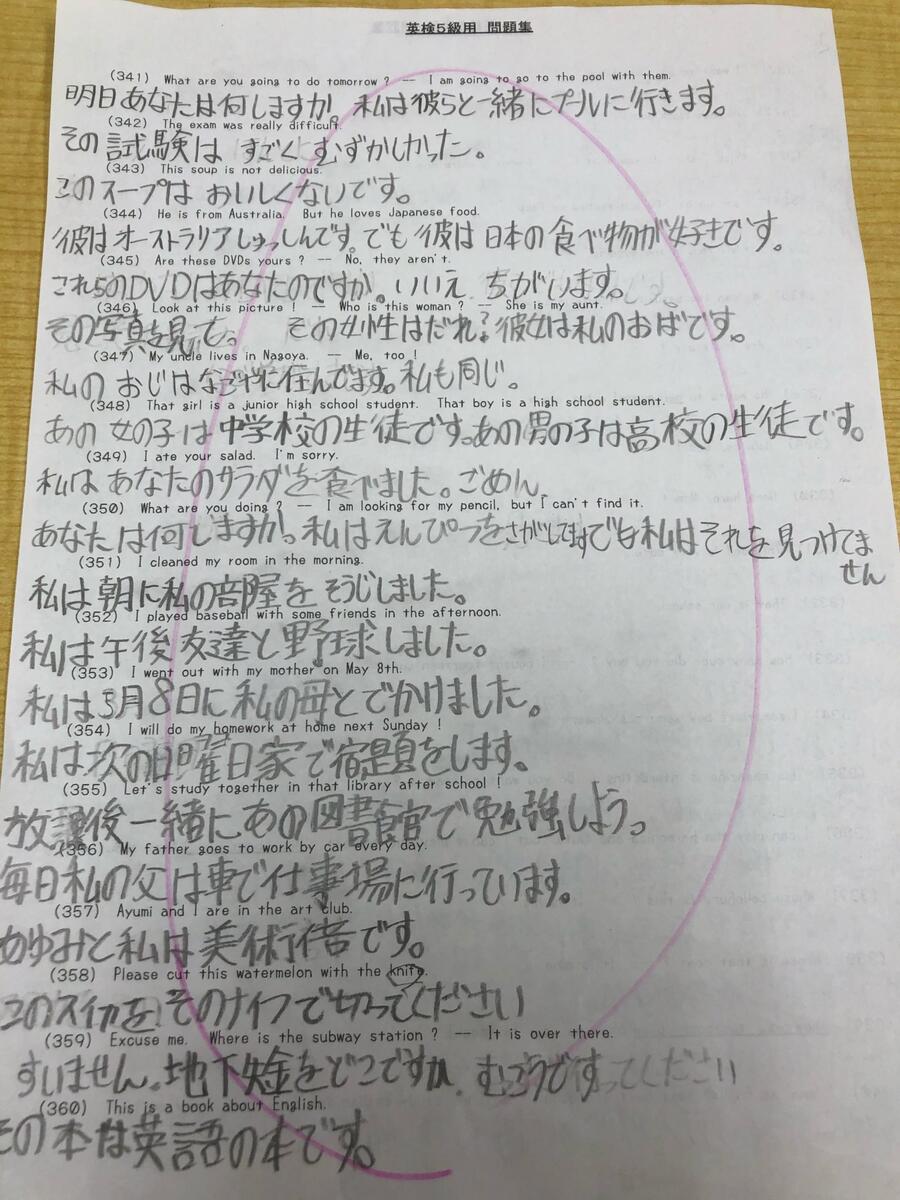 英検5級用 問題集
(341) What are you going to do tomorrow ? -- I am going to go to the pool with them.
明日あなたは何しますか。私は彼らと一緒にプールに行きます。
(342) The exam was really difficult.
その試験は すごく むずかしかった。
(343) This soup is not delicious.
このスープは おいしくないです。
(344) He is from Australia. But he loves Japanese food.
彼はオーストラリアしゅっしんです。でも 彼は 日本の食べ物が好きです。
(345) Are these DVDs yours ? -- No, they aren't.
これらのDVDはあなたのですか。いいえ ちがいます。
(346) Look at this picture ! -- Who is this woman ? -- She is my aunt.
その写真を見て。 その女性はだれ?彼女は私のおばです。
(347) My uncle lives in Nagoya. -- Me, too !
私の おじはなごやに住んでます。私も同じ。
(348) That girl is a junior high school student. That boy is a high school student.
あの 女の子は中学校の生徒です。あの男の子は高校の生徒です。
(349) I ate your salad. I'm sorry.
私は あなたのサラダを食べました。ごめん
(350) What are you doing ? -- I am looking for my pencil, but I can't find it.
あなたは何しますか。私はえんぴつをさがしてますでも私はそれを見つけてま
せん
(351) I cleaned my room in the morning.
私は朝に私の部屋をそうじしました。
(352) I played baseball with some friends in the afternoon.
私は午後友達と野球しました。
(353) I went out with my mother on May 8th.
私は5月8日に私の母とでかけました。
(354) I will do my homework at home next Sunday !
私は次の日曜日家で宿題をします。
(355) Let's study together in that library after school !
放課後一緒にあの図書館で勉強しよう。
(356) My father goes to work by car every day.
毎日私の父は車で仕事場に行っています。
(357) Ayumi and I are in the art club.
あゆみと私は美術部です。
(358) Please cut this watermelon with the knife.
このスイカを そのナイフで切ってください
(359) Excuse me. Where is the subway station ? -- It is over there.
すいません。地下鉄をどこですか むこうです ってください
(360) This is a book about English.
その本は英語の本です。